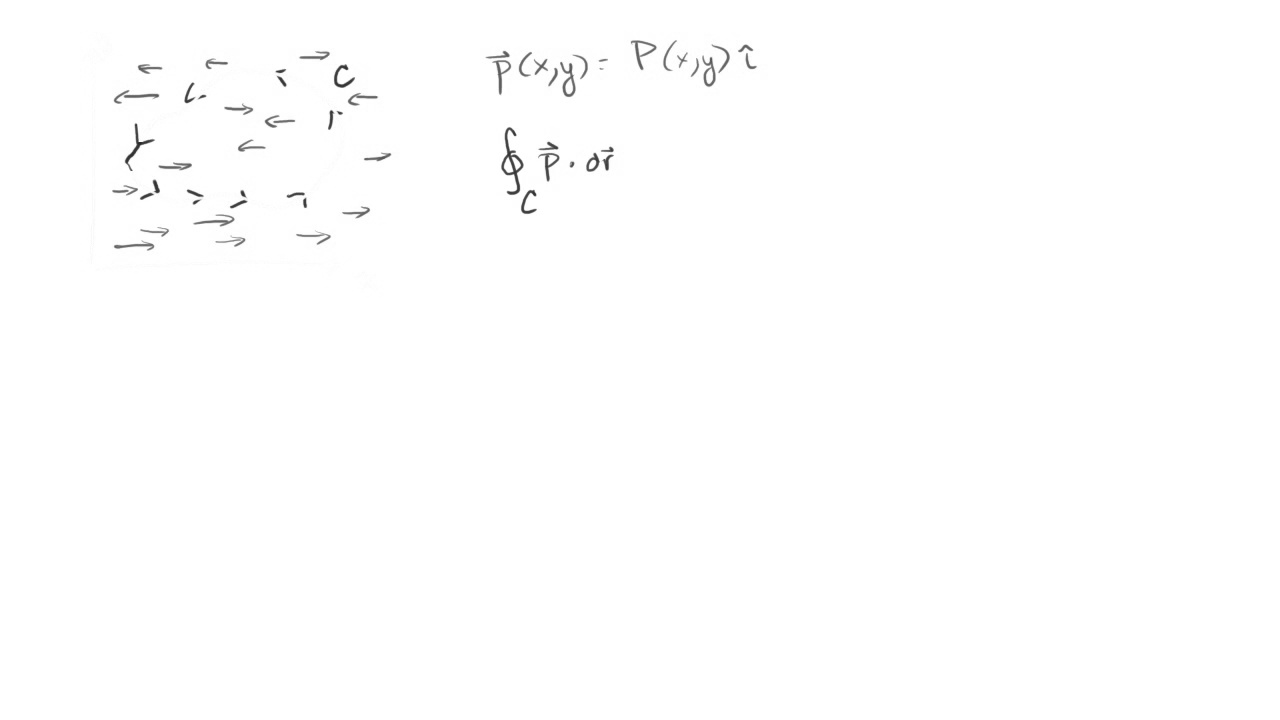 C
p⃗(x,y) = P(x,y) î
∮_C p⃗ · dr⃗